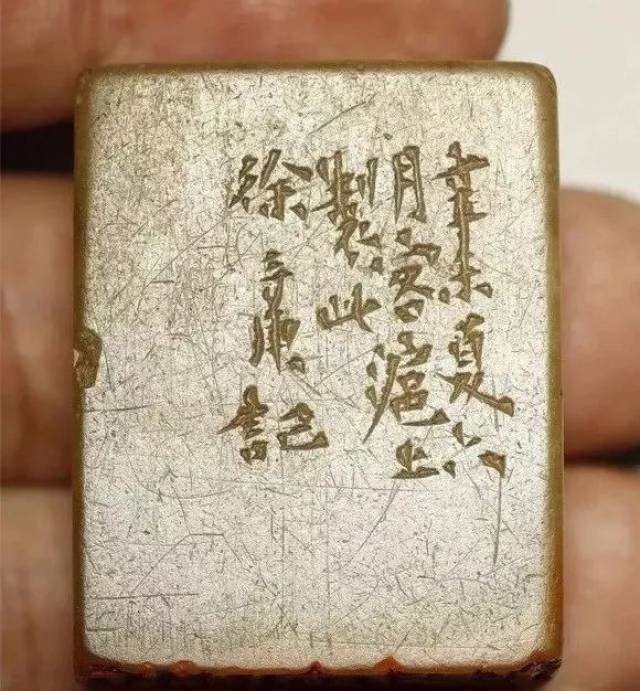 辛未夏六
月客滬上
製此
徐三庚記